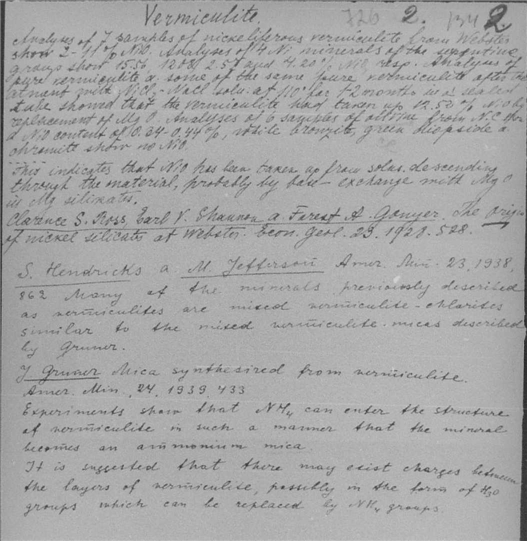 Vermiculite. 726 2. 134 2
Analyses of 7 samples of nickeliferous vermiculite from Webster
show 2-11% NiO. Analyses of 4 Ni minerals of the serpentine
group show 15.56, 12.81, 2.57 and 4.20% NiO resp. Analyses of
pure vermiculite a. some of the same pure vermiculite after
treatment with NiCl2-NaCl solu. at 110° for 12 months in a sealed
tube showed that the vermiculite had taken up 12.52% NiO by
replacement of MgO. Analyses of 6 samples of olivine from N.C. show
a NiO content of 0.34-0.44%, while bronzite, green diopside a
chromite show no NiO.
This indicates that NiO has been taken up from solus. descending
through the material, probably by base-exchange with MgO
in Mg silicates.
Clarence S. Ross, Earl V. Shannon a. Forest A. Gonyer. The origin
of nickel silicates at Webster. Econ. Geol. 23. 1928. 528.
S. Hendricks a. M. Jefferson Amer. Min. 23, 1938,
862 Many of the minerals previously described
as vermiculites are mixed vermiculite-chlorites
similar to the mixed vermiculite-micas described
by Gruner.
J Gruner Mica synthesized from vermiculite.
Amer. Min., 24, 1939, 433
Experiments show that NH4 can enter the structure
of vermiculite in such a manner that the mineral
becomes an ammonium mica.
It is suggested that there may exist charges between
the layers of vermiculite, possibly in the form of H3O
groups which can be replaced by NH4 groups.